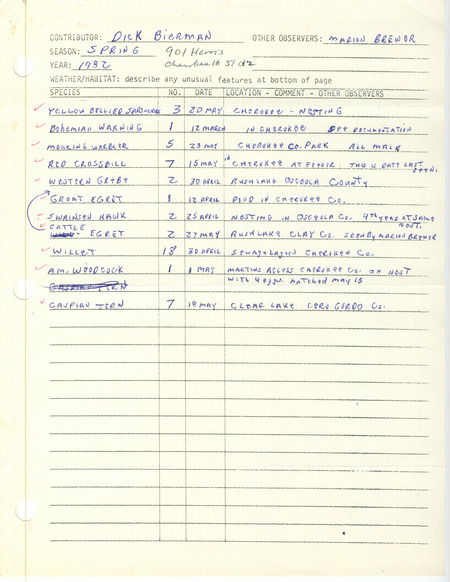 CONTRIBUTOR: DICK BIERMAN OTHER OBSERVERS: MARION BREWER
SEASON: SPRING 901 Harris
YEAR: 1982 Cherokee IA 51012
WEATHER/HABITAT: describe any unusual features at bottom of page
SPECIES NO. DATE LOCATION - COMMENT - OTHER OBSERVERS
YELLOW BELLIED SAPSUCKER 3 20 MAY CHEROKEE - NESTING
BOHEMIAN WAXWING 1 12 MARCH IN CHEROKEE SEE DOCUMENTATION
MOURNING WARBLER 5 23 MAY CHEROKEE CO. PARK ALL MALE
RED CROSSBILL 7 15 MAY IN CHEROKEE AT FEEDER. THIS IS DATE LAST SEEN.
WESTERN GREBE 2 30 APRIL RUSH LAKE OSCEOLA COUNTY
GREAT EGRET 1 12 APRIL POND IN CHEROKEE CO.
SWAINSON HAWK 2 25 APRIL NESTING IN OSCEOLA CO. 4th YEAR AT SAME NEST.
CATTLE EGRET 2 27 MAY RUSH LAKE CLAY CO. SEEN BY MARION BREWER
WILLET 18 30 APRIL SEWAGE LAGOON CHEROKEE CO.
AM. WOODCOCK 1 8 MAY MARTINS ACCESS CHEROKEE CO. ON NEST
CASPIAN TERN WITH 4 EGGS. HATCHED MAY 15
CASPIAN TERN 7 18 MAY CLEAR LAKE CERO GORDO CO.